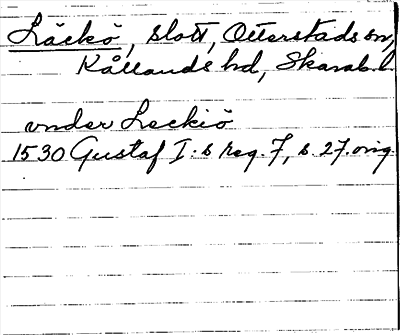 Läckö, slott, Otterstads sn,
Kållands hd, Skarab. l.
under Leckiö
1530 Gustaf I:s reg. 7, s. 27. orig.